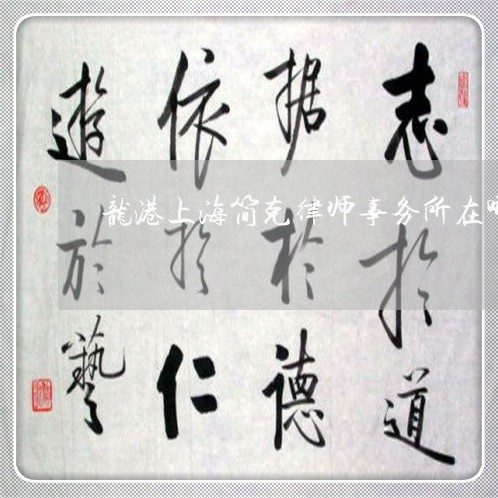 志於道
据於德
依於仁
遊於藝
龍港上海简克律师事务所在